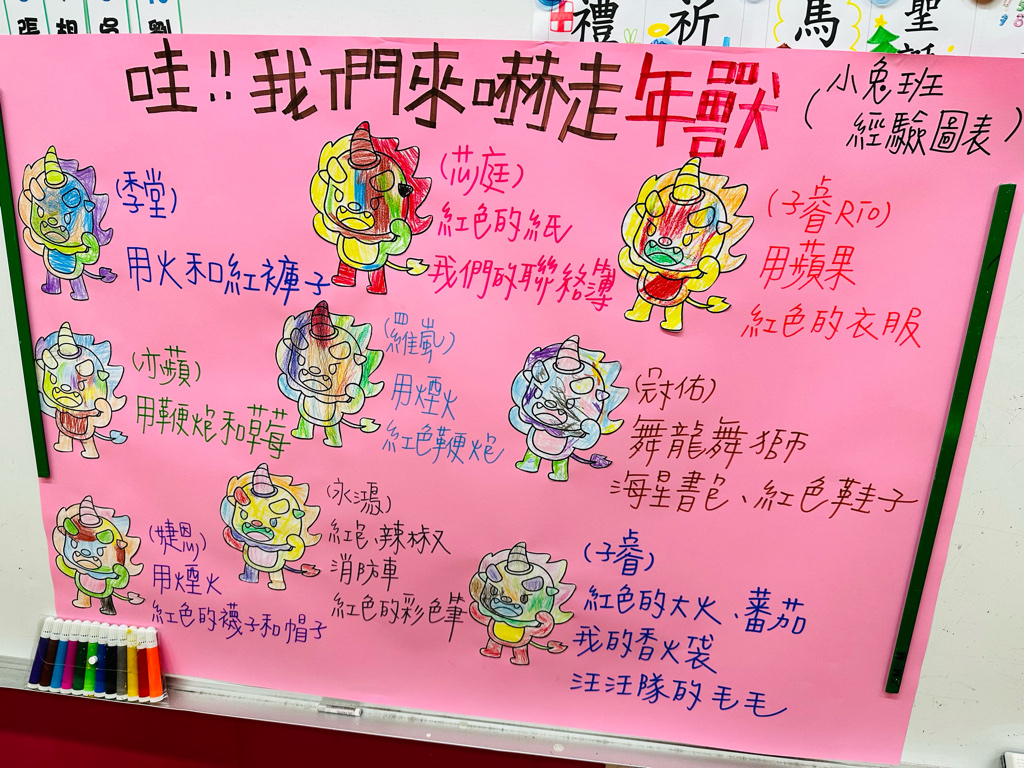 張 胡 吳 劉
禮 祈 馬 聖
哇!!我們來嚇走年獸
(小兔班
經驗圖表)
(季堂)
用火和紅褲子
(芯庭)
紅色的紙
我們的聯絡簿
(子睿RIO)
用蘋果
紅色的衣服
(亦蘋)
用鞭炮和草莓
用煙火
紅色鞭炮
(冠佑)
舞龍舞獅
海星書包、紅色鞋子
(婕恩)
用煙火
紅色的襪子和帽子
(永鴻)
紅色、辣椒
消防車
紅色的彩色筆
(子睿)
紅色的大火、蕃茄
我的香火袋
汪汪隊的毛毛